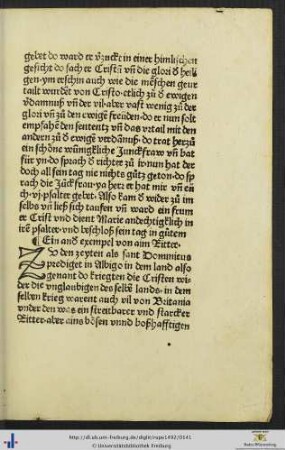 gebet do ward er v̈zuckt in einer himlischen
gesicht do sach er Cristū vn̄ die glori d̕ heil-
gen·ym erschin auch wie die mēschen geur
tailt wurdēt von Cristo·etlich zů d̕ ewigen
v̕damnuß vn̄ der vil·aber vast wenig zů der
glori vn̄ zů den ewigē freüden·do er nun solt
empfahē den sententz vn̄ das vrtail mit den
andern zů d̕ ewigē verdāmnuß·do trat herzů
ein schöne wūnigkliche Junckfraw vn̄ bat
für yn·do sprach d̕ richter zů ir·nun hat der
doch all sein tag nie nichts gůtz geton·do sp
rach die Jückfrau·ya herz er hat mir vn̄ eü
ch·vj·psalter gebet·Also kam d̕ wider zů im
selbs vn̄ ließ sich taufen vn̄ ward ein frum
er Crist vnd dient Marie andechtigklich in
irē psalter·vnd beschloß sein tag in gůtem
¶ Ein and̕ exempel von aim Ritter·
ZV den zeyten als sant Dominicus
prediget in Albigo in dem land also
genant do kriegten die Cristen wi-
der die vnglaubigen des selbē lands·in dem
selbē krieg warent auch vil von Britania
vnder den was ein streitbarer vnd starcker
Ritter·aber eins bösen vnnd boßhafftigen
http://dl.ub.uni-freiburg.de/diglit/rupe1492/0141
© Universitätsbibliothek Freiburg
Baden-Württemberg